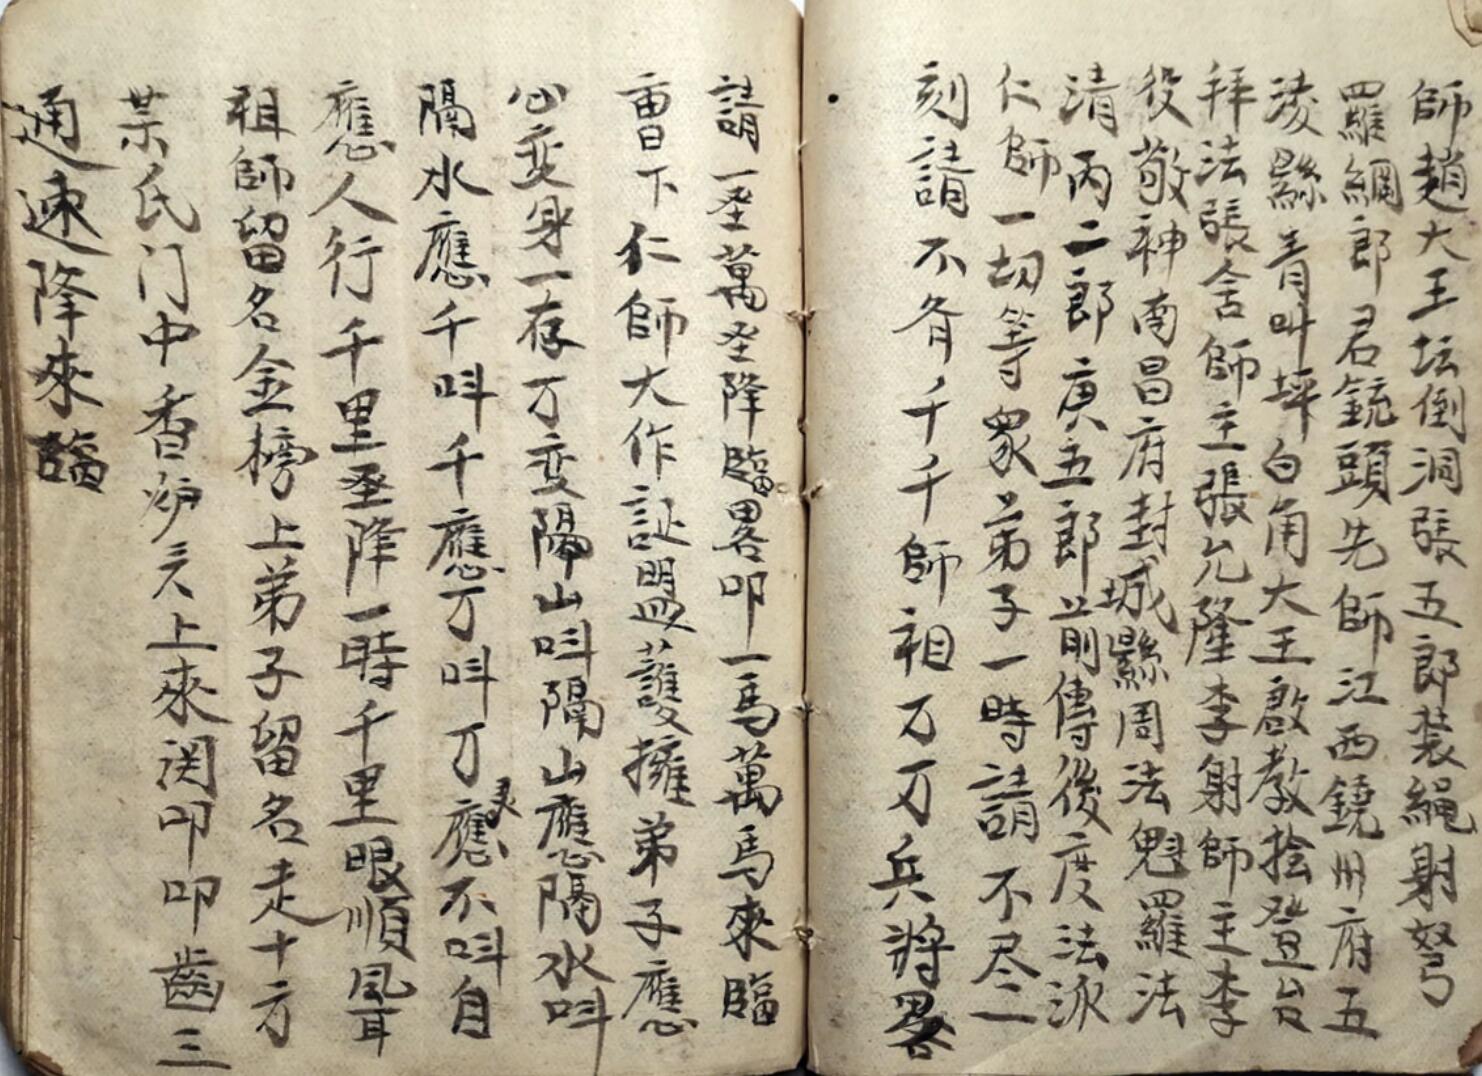 師趙大王坛倒洞張五郎裝繩射弩
羅網郎君銃頭先師江西鐃州府五
淩縣青叫坪白角大王啟教捨登台
拜法張舍師主張允隆李射師主李
役敬神南昌府封城縣周法魁羅法
清丙二郎庚五郎前傳後度法泳
仁師一切等眾弟子一時請不尽二
刻請不齐千千師祖万万兵將畧
請一圣萬圣降臨畧叩一馬萬馬來臨
曹下仁師大作証盟護擁弟子應
心变身一存万变隔山呌隔山應隔水呌
隔水應千呌千應万呌万應不呌自
應人行千里圣降一時千里眼順風耳
祖師留名金榜上弟子留名走十方
某氏门中香炉上來関叩叩齒三
通速降來臨